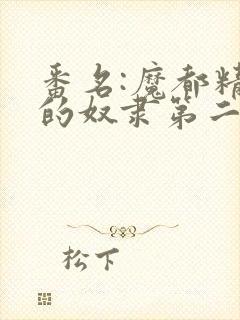 番名:魔都精
的奴隶第二
松下